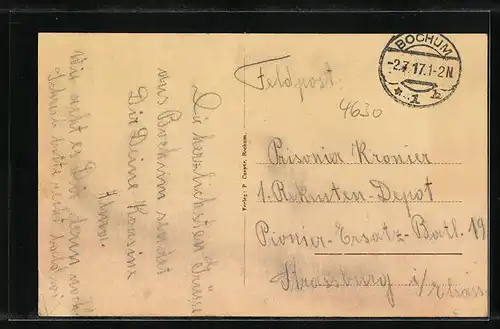 Die herzlichsten Grüsse
aus Bochum sendet
Dir Deine Kousine
Anna.
Wie geht es Dir denn noch
Schreib bitte recht bald
Feldpost.
BOCHUM
-2.7.17.1-2N
* 1 b
4630
Pionier
1. Rekruten-Depot
Pionier-Ersatz-Batl. 19
Strassburg i/Elsass
Verlag: P. Bochum.